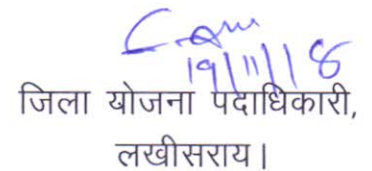 19/11/18
जिला योजना पदाधिकारी,
लखीसराय।